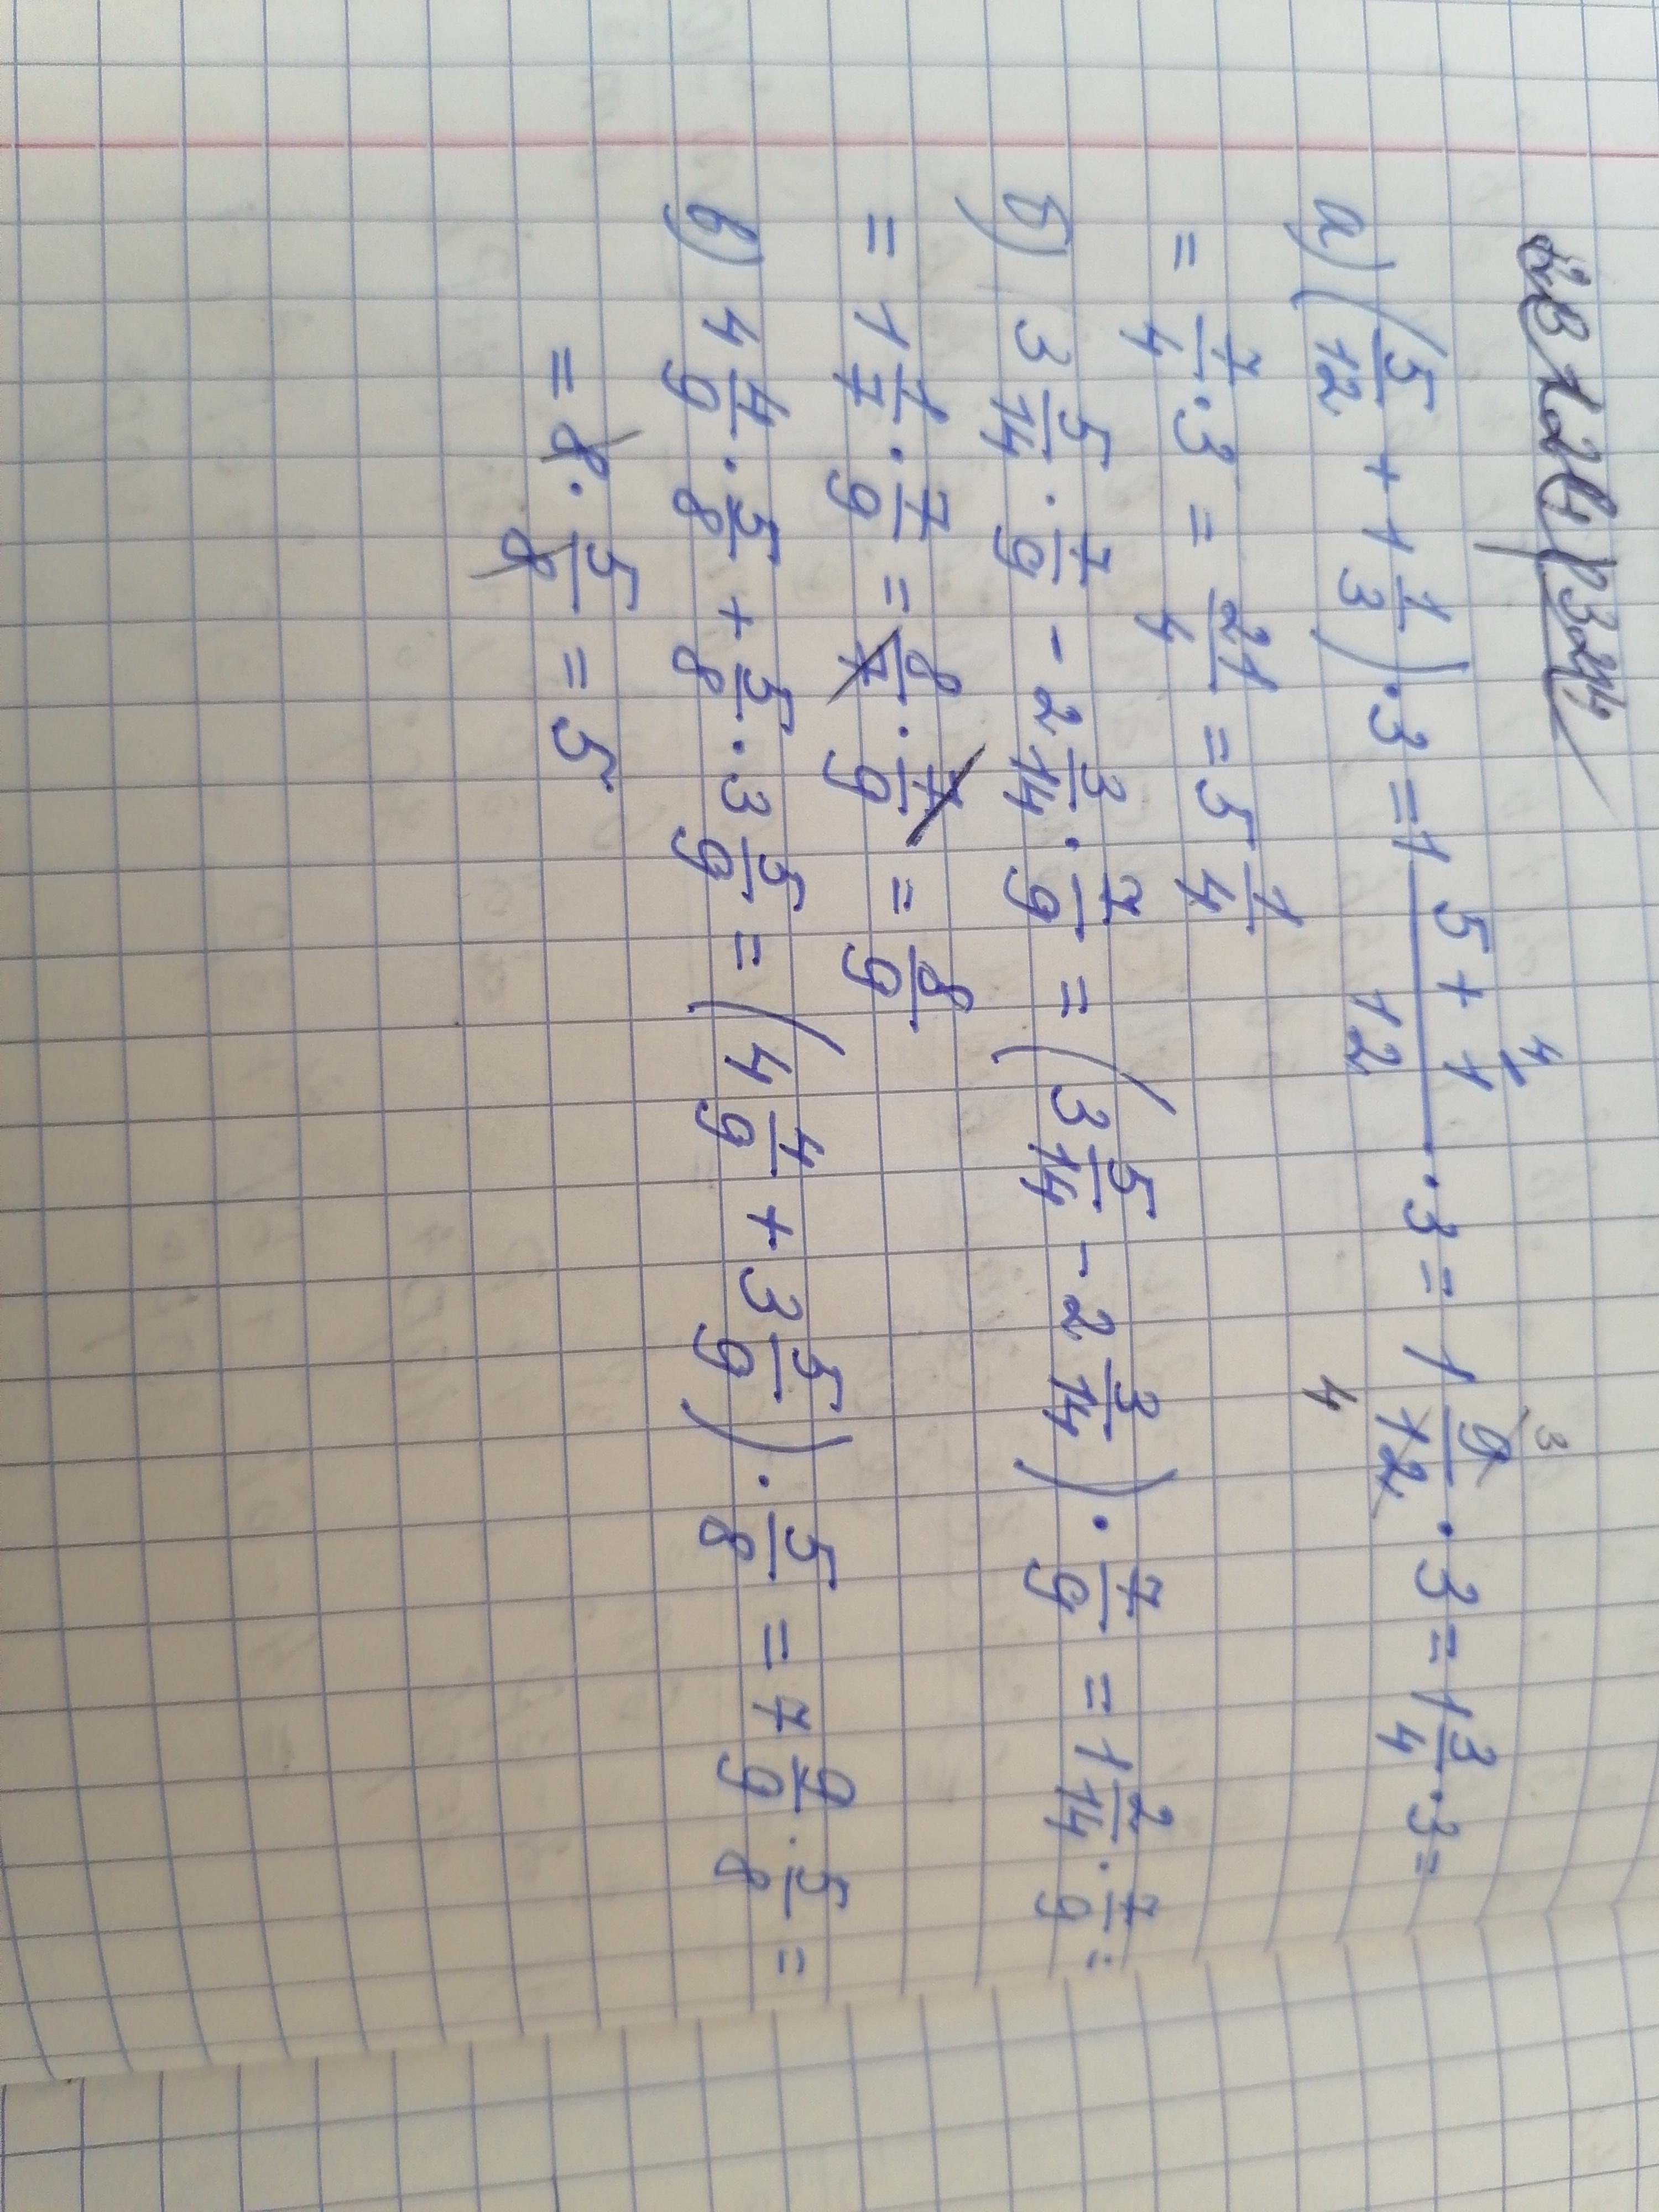 а) (5/12 + 1 1/3) · 3 = 1 (5 + 1⁴)/12 · 3 = 1 9/12 · 3 = 1 3/4 · 3 =
= 7/4 · 3 = 21/4 = 5 1/4
б) 3 5/14 · 7/9 - 2 3/14 · 7/9 = (3 5/14 - 2 3/14) · 7/9 = 1 2/14 · 7/9 =
= 1 1/7 · 7/9 = 8/7 · 7/9 = 8/9
в) 4 4/9 · 5/8 + 5/8 · 3 5/9 = (4 4/9 + 3 5/9) · 5/8 = 7 9/9 · 5/8 =
= 8 · 5/8 = 5